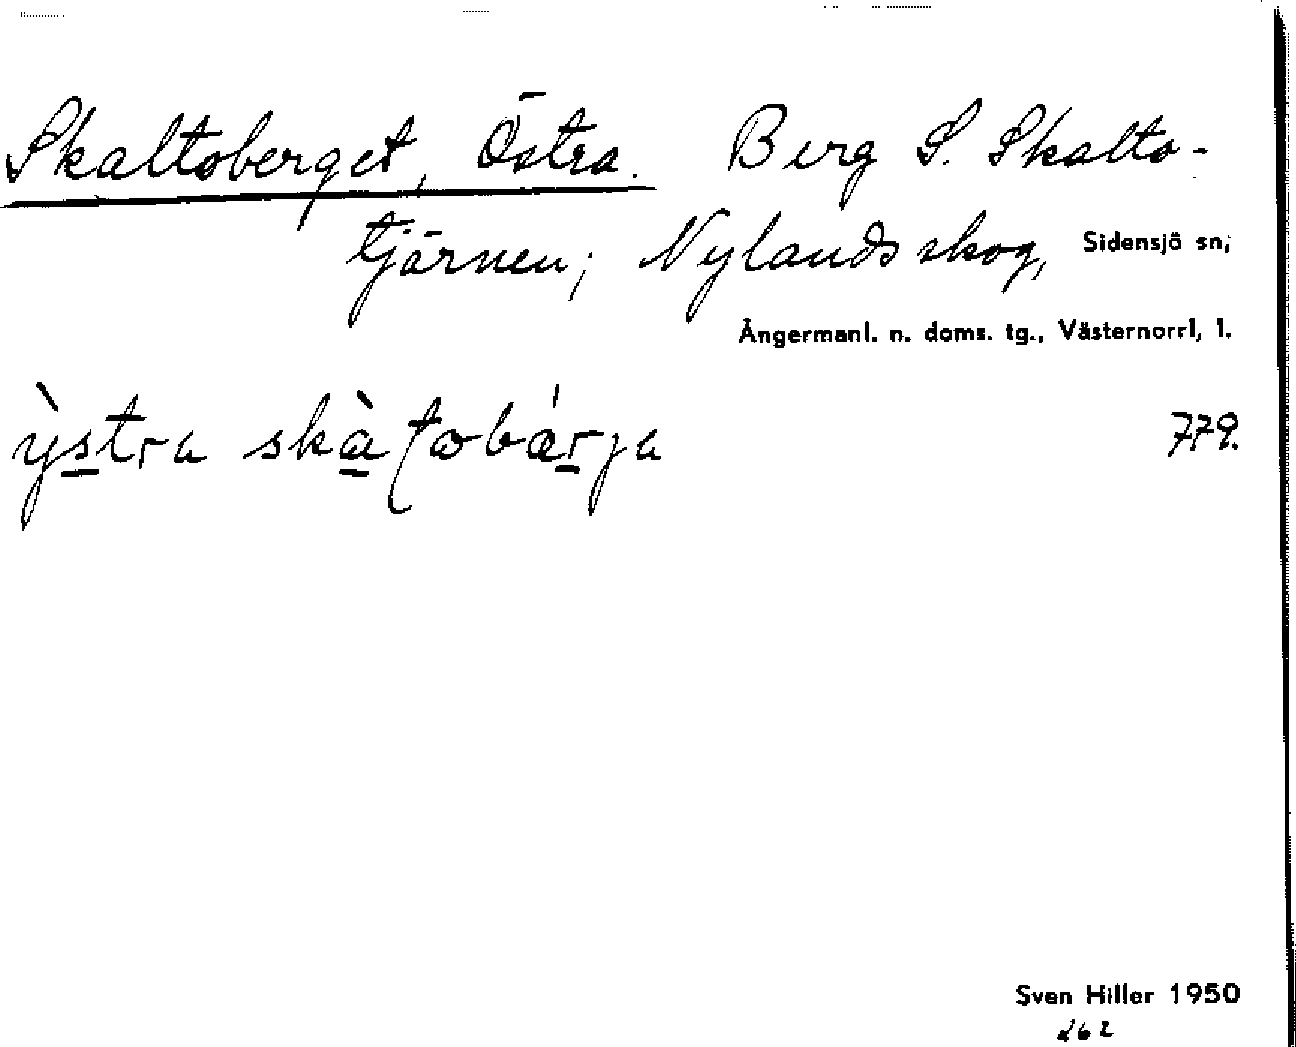 Skaltoberget, Östra. Berg S. Skalto-
tjärnen; Nylands skog, Sidensjö sn;
Ångermanl. n. doms. tg., Västernorrl, l.
ỳstra 779.
Sven Hiller 1950
262